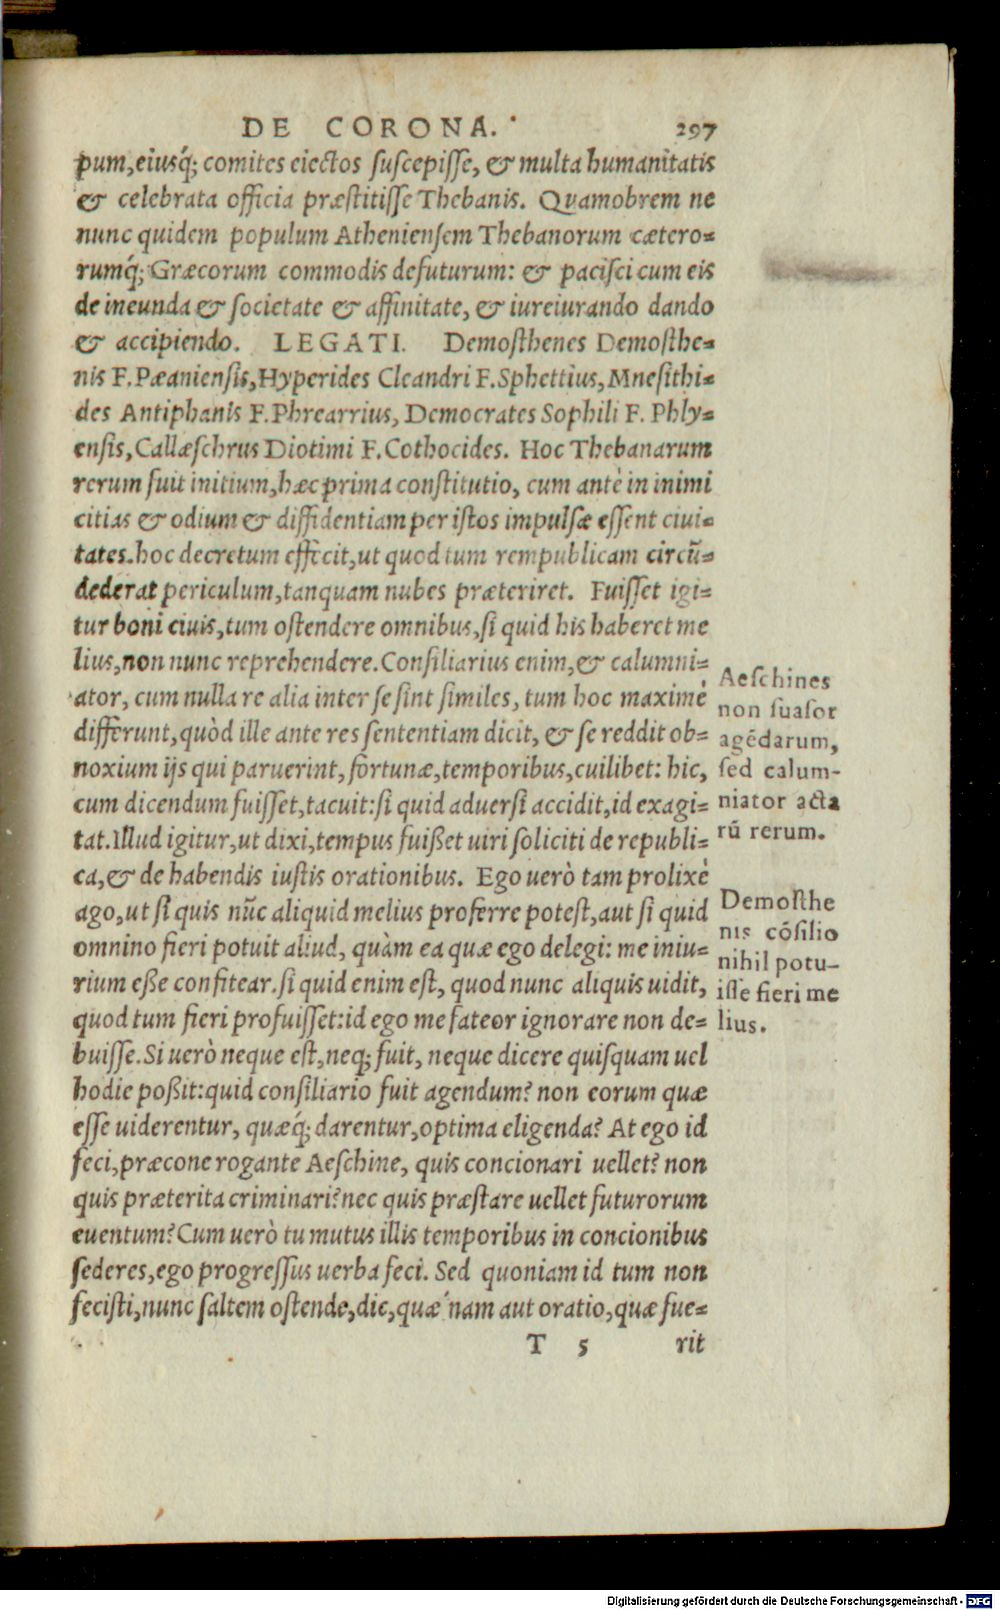 DE CORONA. 297
pum, eiusq́; comites eiectos suscepisse, & multa humanitatis
& celebrata officia præstitisse Thebanis. Quamobrem ne
nunc quidem populum Atheniensem Thebanorum cætero=
rumq́; Græcorum commodis defuturum: & pacisci cum eis
de ineunda & societate & affinitate, & iureiurando dando
& accipiendo. LEGATI. Demosthenes Demosthe=
nis F. Pæaniensis, Hyperides Cleandri F. Sphettius, Mnesithi=
des Antiphanis F. Phrearrius, Democrates Sophili F. Phly=
ensis, Callæschrus Diotimi F. Cothocides. Hoc Thebanarum
rerum fuit initium, hæc prima constitutio, cum antè in inimi
citias & odium & diffidentiam per istos impulsæ essent ciui=
tates. hoc decretum effecit, ut quod tum rempublicam circũ=
dederat periculum, tanquam nubes præteriret. Fuisset igi=
tur boni ciuis, tum ostendere omnibus, si quid his haberet me
lius, non nunc reprehendere. Consiliarius enim, & calumni=
ator, cum nulla re alia inter se sint similes, tum hoc maximè
differunt, quòd ille ante res sententiam dicit, & se reddit ob=
noxium ijs qui paruerint, fortunæ, temporibus, cuilibet: hic,
cum dicendum fuisset, tacuit: si quid aduersi accidit, id exagi=
tat. Illud igitur, ut dixi, tempus fuißet uiri soliciti de republi=
ca, & de habendis iustis orationibus. Ego uerò tam prolixè
ago, ut si quis nũc aliquid melius proferre potest, aut si quid
omnino fieri potuit aliud, quàm ea quæ ego delegi: me iniu=
rium eße confitear. si quid enim est, quod nunc aliquis uidit,
quod tum fieri profuisset: id ego me fateor ignorare non de=
buisse. Si uerò neque est, neq; fuit, neque dicere quisquam uel
hodie poßit: quid consiliario fuit agendum? non eorum quæ
esse uiderentur, quæq́; darentur, optima eligenda? At ego id
feci, præcone rogante Aeschine, quis concionari uellet? non
quis præterita criminari? nec quis præstare uellet futurorum
euentum? Cum uerò tu mutus illis temporibus in concionibus
sederes, ego progressus uerba feci. Sed quoniam id tum non
fecisti, nunc saltem ostende, dic, quæ nam aut oratio, quæ fue=
T 5 rit
Aeschines
non suasor
agẽdarum,
sed calum-
niator acta
rũ rerum.
Demosthe
nis cõsilio
nihil potu-
isse fieri me
lius.
Digitalisierung gefördert durch die Deutsche Forschungsgemeinschaft - DFG